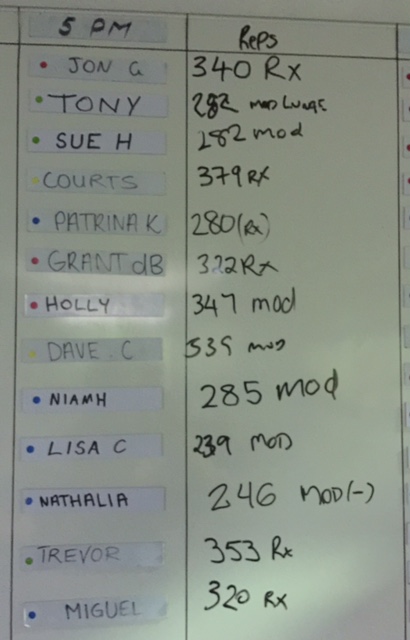 5 PM Reps
JON G 340 Rx
TONY 282 mod LUNGE
SUE H 282 mod
COURTS 379 RX
PATRINA K 280 (Rx)
GRANT dB 322 Rx
HOLLY 347 mod
DAVE. C 339 mod
NIAMH 285 mod
LISA C 239 MOD
NATHALIA 246 MOD(-)
TREVOR 353 Rx
MIGUEL 320 RX